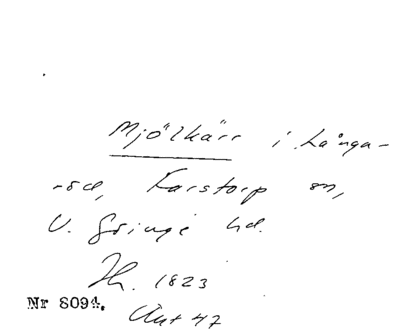 Mjölkärr i Långa-
röd, Farstorp sn,
V. Göinge hd.
Jb. 1823
Nr 8094.
Akt 47